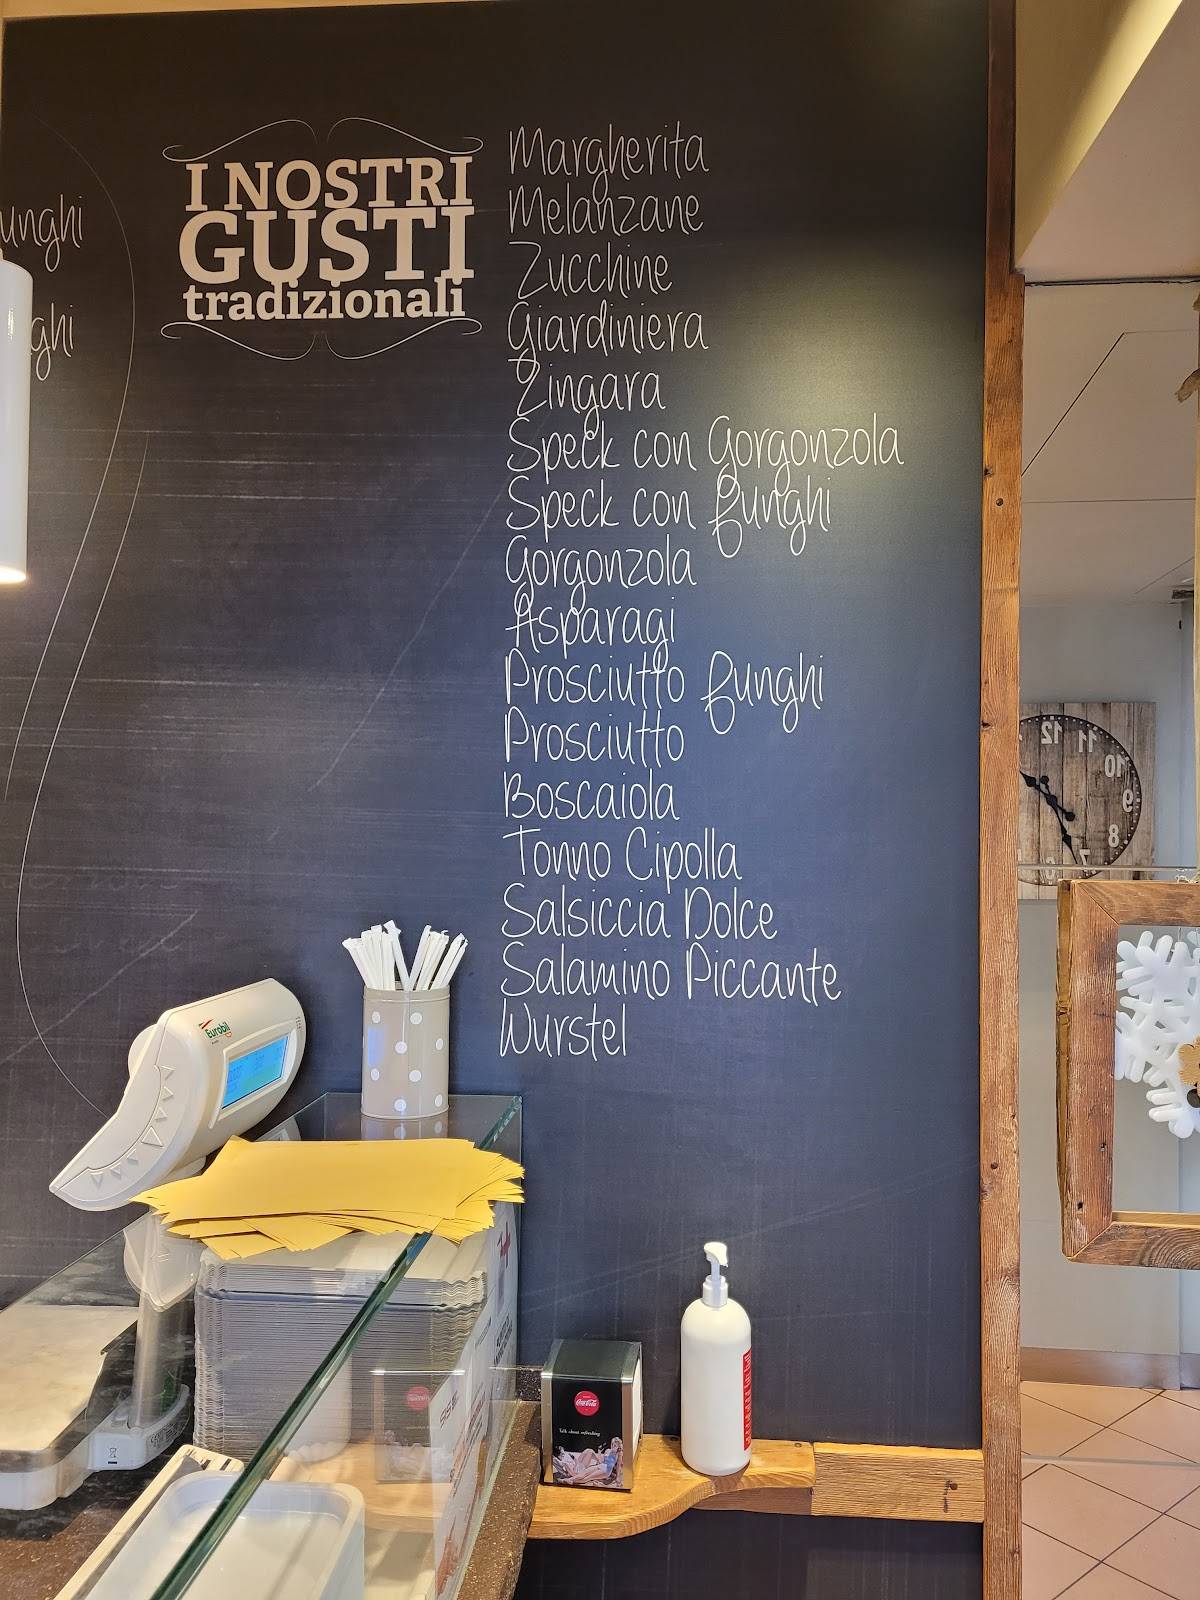 I NOSTRI
GUSTI
tradizionali
Margherita
Melanzane
Zucchine
Giardiniera
Zingara
Speck con Gorgonzola
Speck con funghi
Gorgonzola
Asparagi
Prosciutto funghi
Prosciutto
Boscaiola
Tonno Cipolla
Salsiccia Dolce
Salamino Piccante
Wurstel
unghi
ghi
Eurobil
Coca-Cola
Talk about refreshing
12
11
10
9
8
7